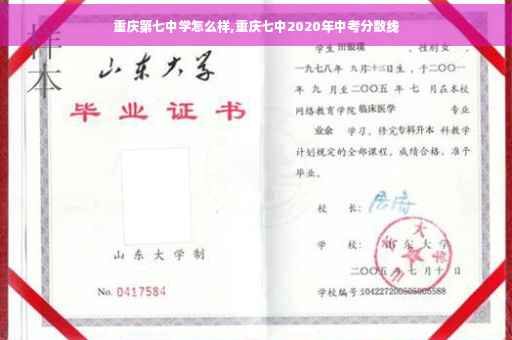 重庆第七中学怎么样,重庆七中2020年中考分数线
样本
山东大学
毕业证书
山东大学制
No. 0417584
学生 性别 女 ,
一九七八年 九月十三日生，于二〇〇一
年 九 月至二〇〇五 年 七 月在本校
网络教育学院 临床医学 专业
业余 学习，修完专科升本 科教学
计划规定的全部课程，成绩合格，准予
毕业。
校 长：
学 校： 山东大学
二〇〇五 年 七 月十 日
学校编号:104227200505005588